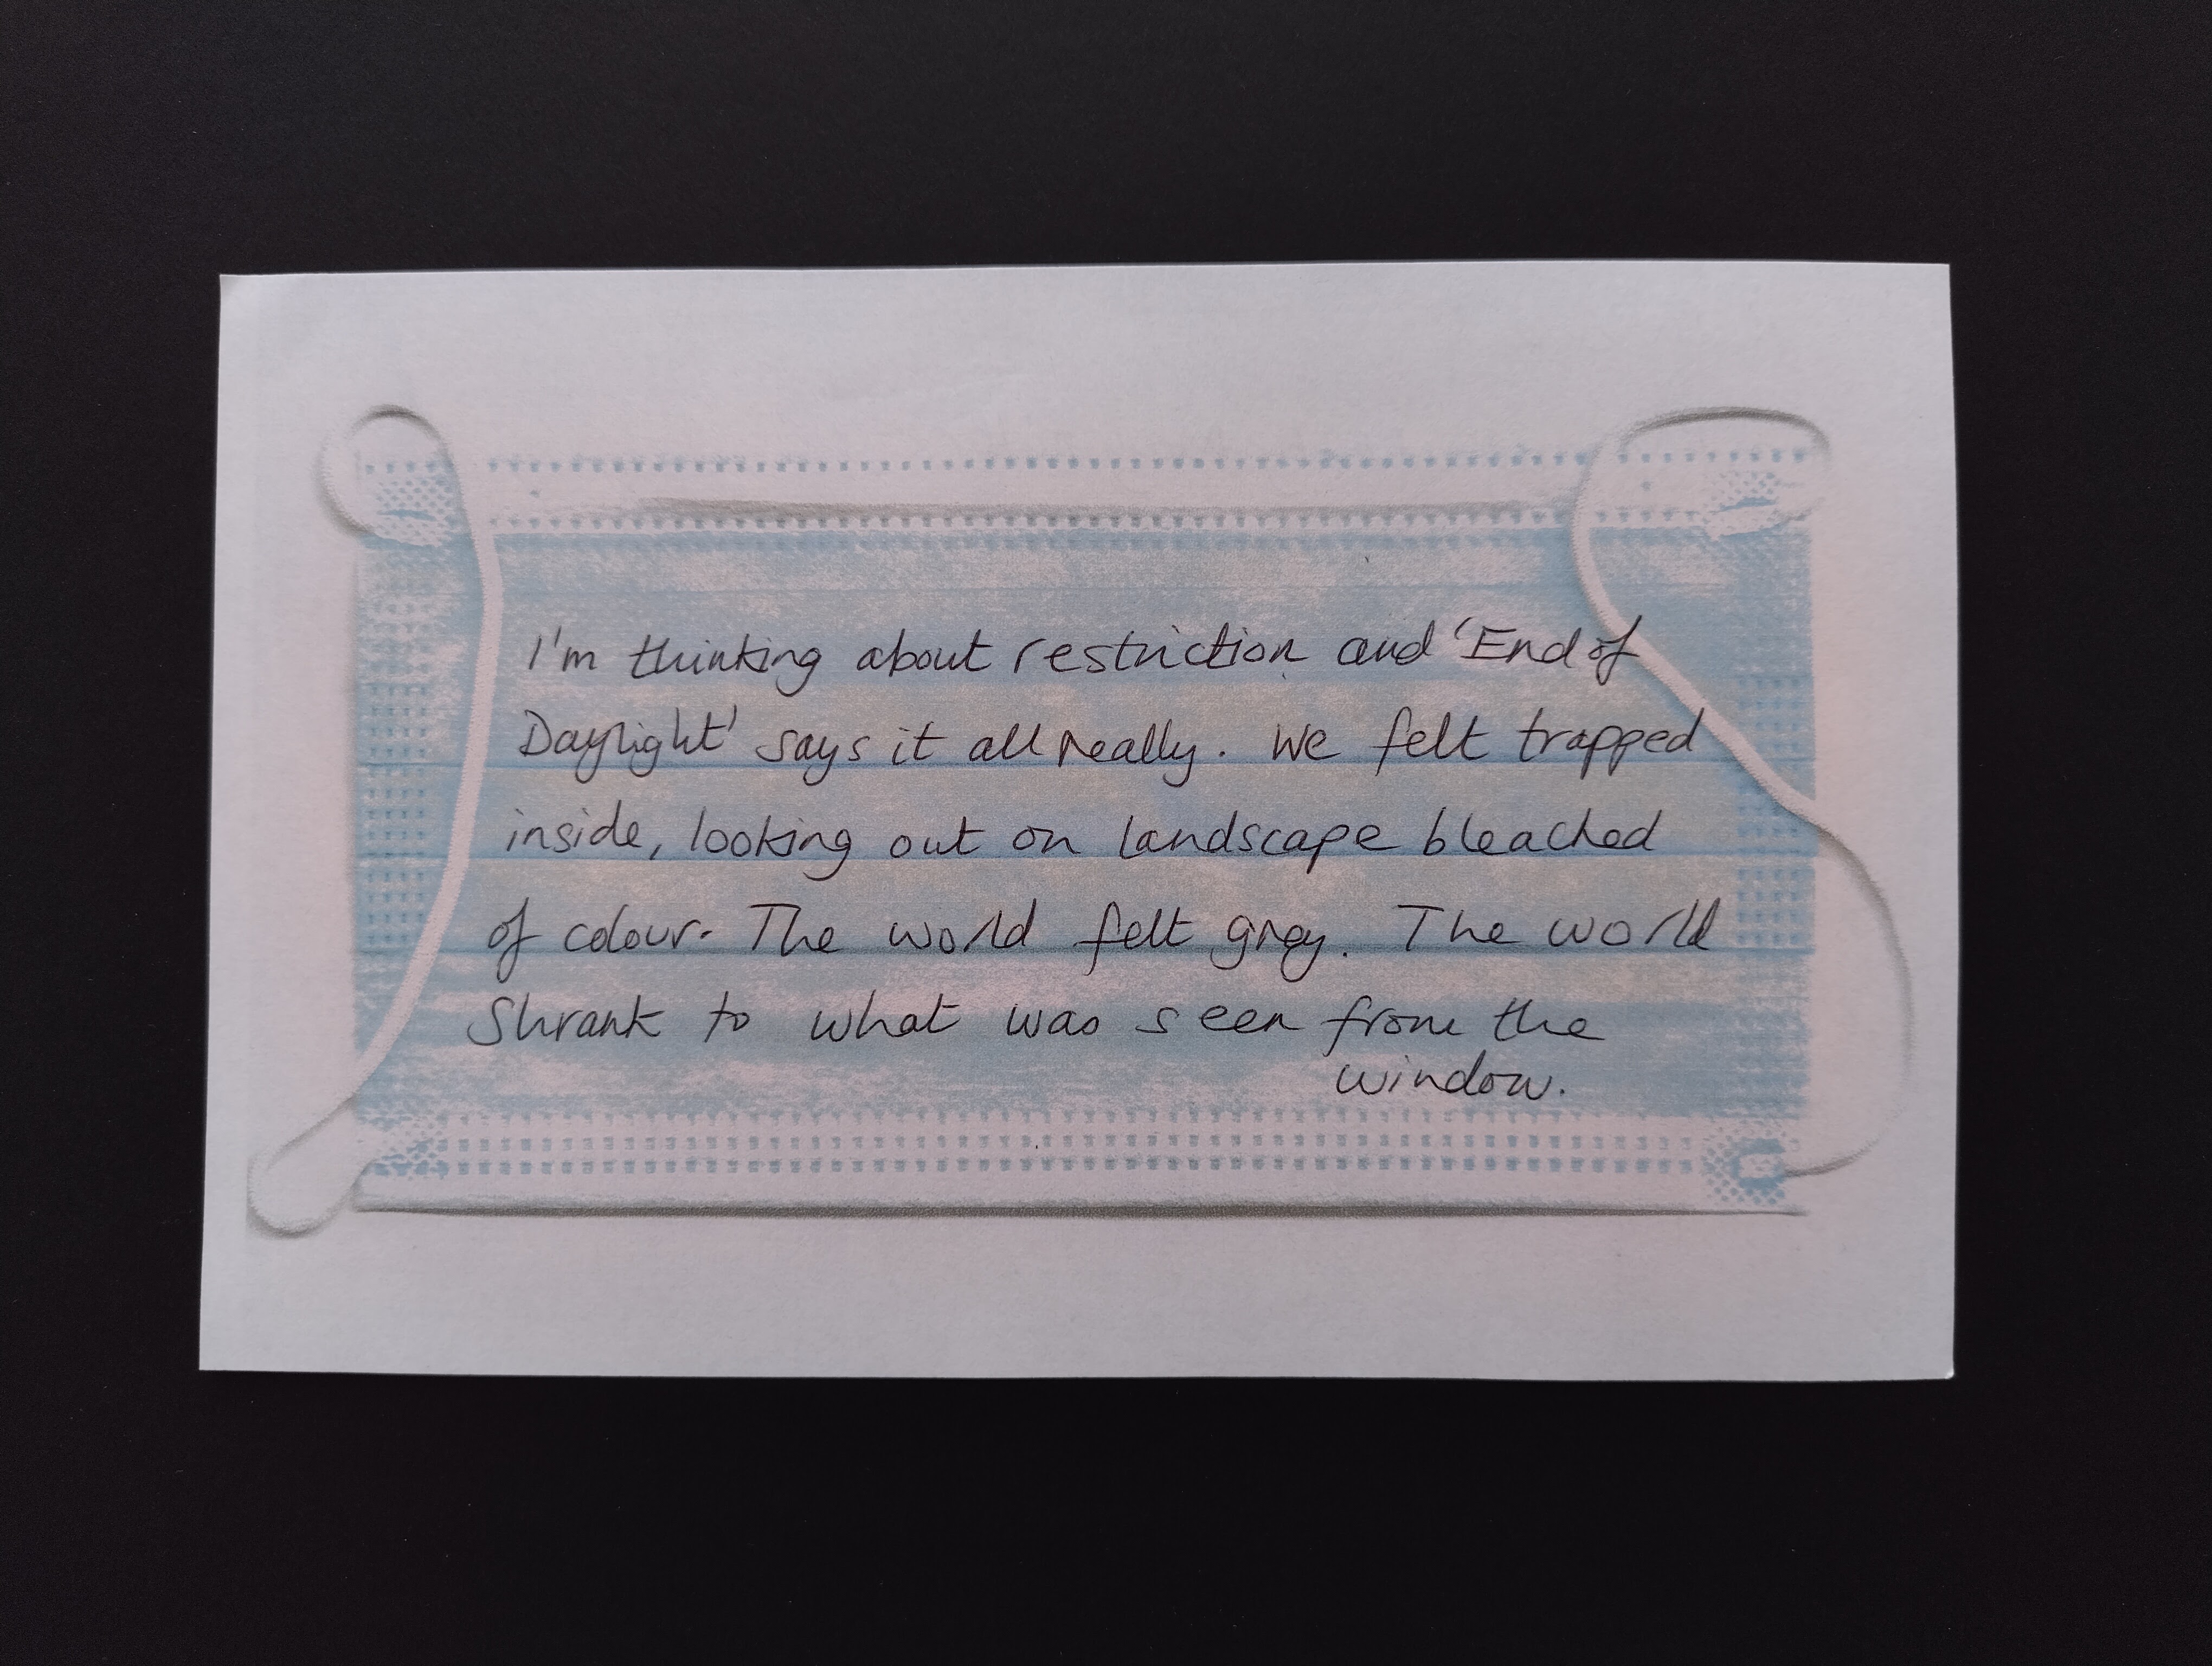 I'm thinking about restriction and 'End of
Daylight' says it all really. We felt trapped
inside, looking out on landscape bleached
of colour. The world felt grey. The world
Shrank to what was seen from the
window.